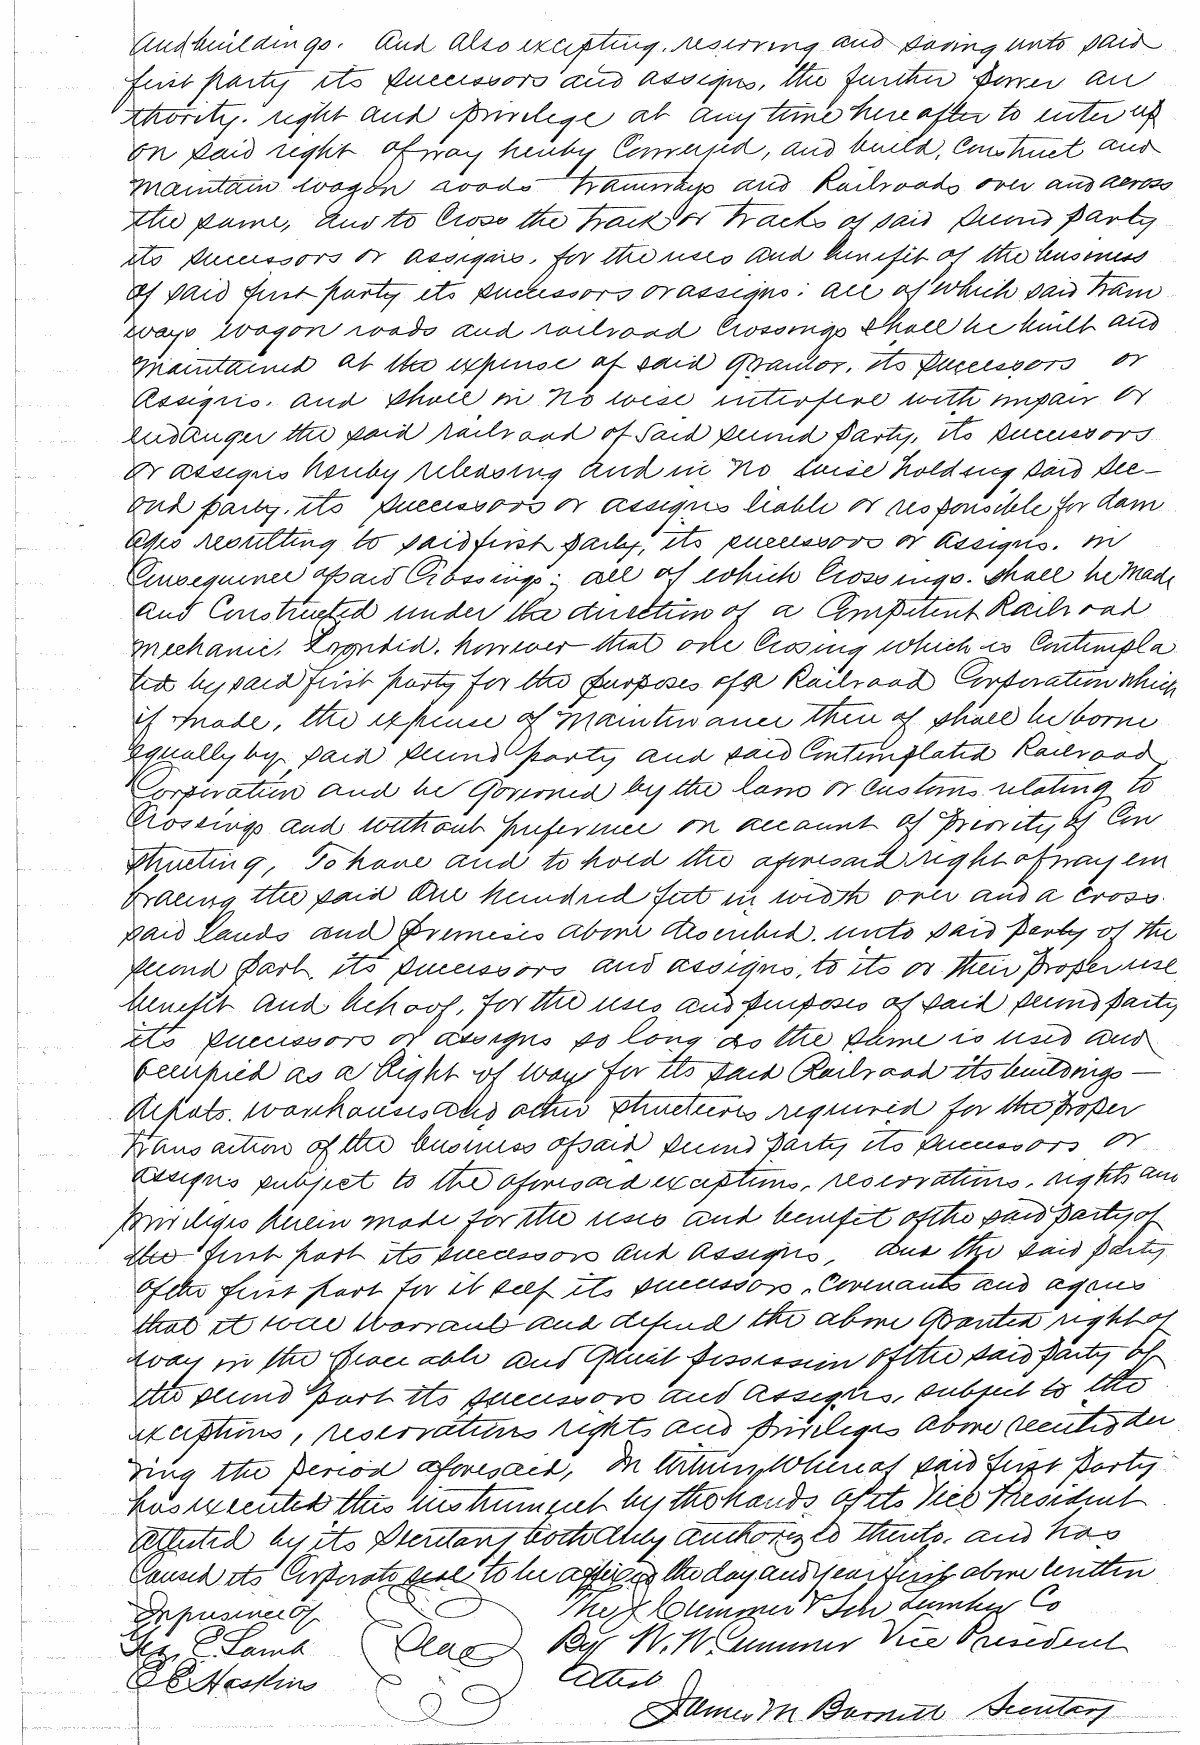 and buildings. And also excepting, reserving and saving unto said
first party its successors and assigns, the further power au
thority, right and privilege at any time hereafter to enter up
on said right of way hereby Conveyed, and build, Construct and
maintain wagon roads tramways and Railroads over and across
the same, and to Cross the track or tracks of said second party
its successors or assigns, for the uses and benefit of the business
of said first party its successors or assigns: all of which said tram
ways wagon roads and railroad Crossings shall be built and
maintained at the expense of said grantor, its successors or
assigns, and shall in no wise interfere with impair or
endanger the said railroad of said second party, its successors
or assigns hereby releasing and in no wise holding said sec-
ond party, its successors or assigns liable or responsible for dam
ages resulting to said first party, its successors or assigns, in
Consequence of said Crossings; all of which Crossings, shall be made
and Constructed under the direction of a Competent Railroad
mechanic. Provided, however that one Crossing which is Contempla
ted by said first party for the purposes of a Railroad Corporation which
if made, the expense of maintenance thereof shall be borne
equally by said second party and said Contemplated Railroad
Corporation and be Governed by the laws or customs relating to
Crossings and without preference on account of Priority of Con
structing, To have and to hold the aforesaid right of way em
bracing the said One hundred feet in width over and across
said lands and premises above described unto said Party of the
second part, its successors and assigns, to its or their proper use
benefit and behoof, for the uses and purposes of said second party
its successors or assigns so long as the same is used and
occupied as a Right of way for its said Railroad its buildings —
depots, warehouses and other structures required for the proper
transaction of the business of said second party its successors or
assigns subject to the aforesaid exceptions, reservations, rights and
privileges herein made for the uses and benefit of the said party of
the first part its successors and assigns, and the said party
of the first part for it self its successors, Covenants and agrees
that it will Warrant and defend the above Granted right of
way in the peaceable and Quiet possession of the said party of
the second part its successors and assigns, subject to the
exceptions, reservations rights and privileges above recited du
ring the period aforesaid, In Witness Whereof said first party
has executed this instrument by the hands of its Vice President
attested by its Secretary both duly authorized thereto, and has
Caused its Corporate seal to be affixed the day and year first above written
In presence of The J Cummer & Son Lumber Co
Geo. E. Lamb Seal By W. W. Cummer Vice President
E E Haskins Attest
James M Barnett Secretary